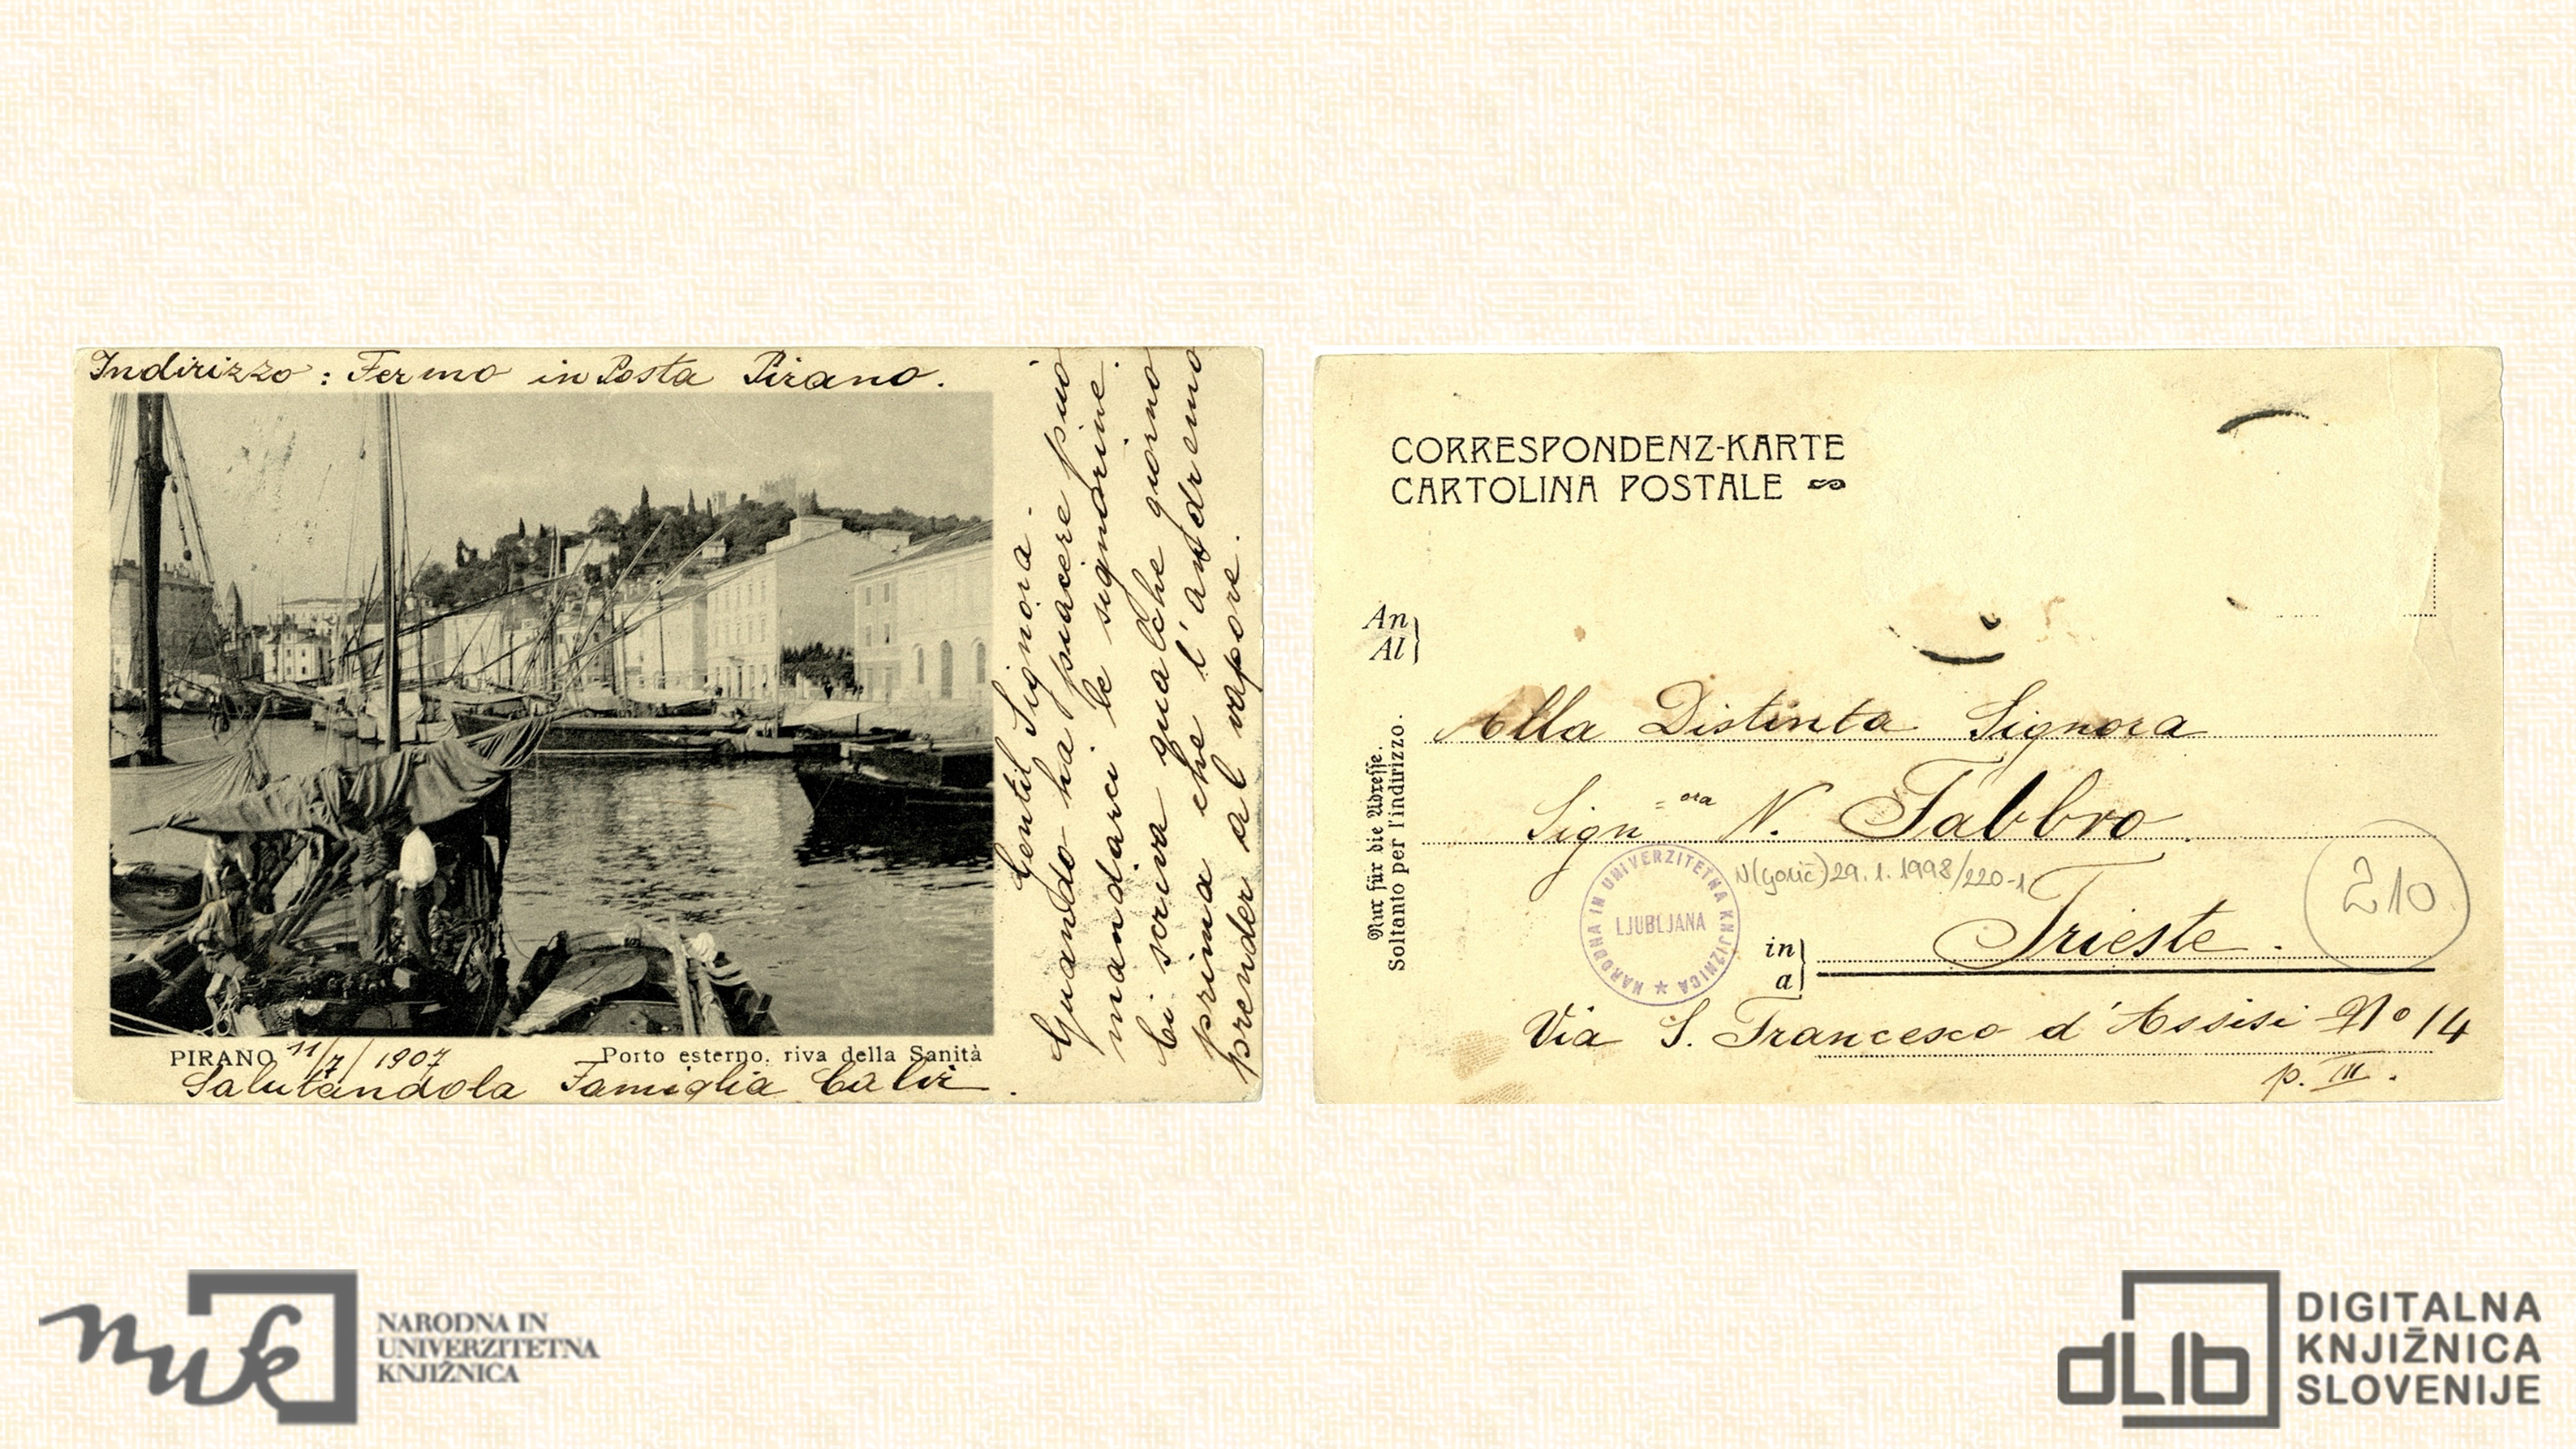 Indirizzo: Fermo in Posta Pirano.
Gentil Signora.
Quando ha piacere può
mandarci le signorine.
Ci scriva qualche giorno
prima che l'andremo
prender al vapore.
PIRANO 11/7/1907 Porto esterno. riva della Sanità
Salutandola Famiglia Calvi.
CORRESPONDENZ-KARTE
CARTOLINA POSTALE
An
Al
Nur für die Adresse.
Soltanto per l'indirizzo.
Alla Distinta Signora
Sign=ora N. Fabbro
N(Gorič) 29.1.1998/220-1
210
NARODNA IN UNIVERZITETNA KNJIŽNICA ★
LJUBLJANA
in
a
Trieste.
Via S. Francesco d'Assisi No 14
p. III.
nuk
NARODNA IN
UNIVERZITETNA
KNJIŽNICA
dLib
DIGITALNA
KNJIŽNICA
SLOVENIJE